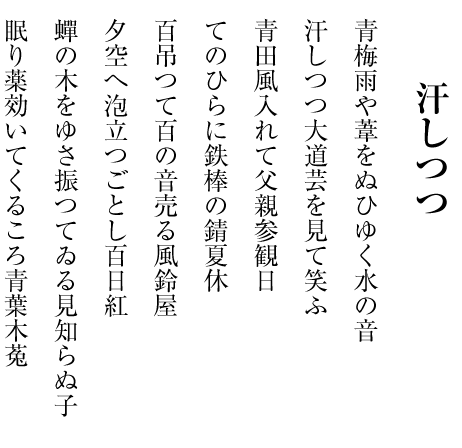 汗しつつ
青梅雨や葦をぬひゆく水の音
汗しつつ大道芸を見て笑ふ
青田風入れて父親参観日
てのひらに鉄棒の錆夏休
百吊つて百の音売る風鈴屋
夕空へ泡立つごとし百日紅
蟬の木をゆさ振つてゐる見知らぬ子
眠り薬効いてくるころ青葉木菟